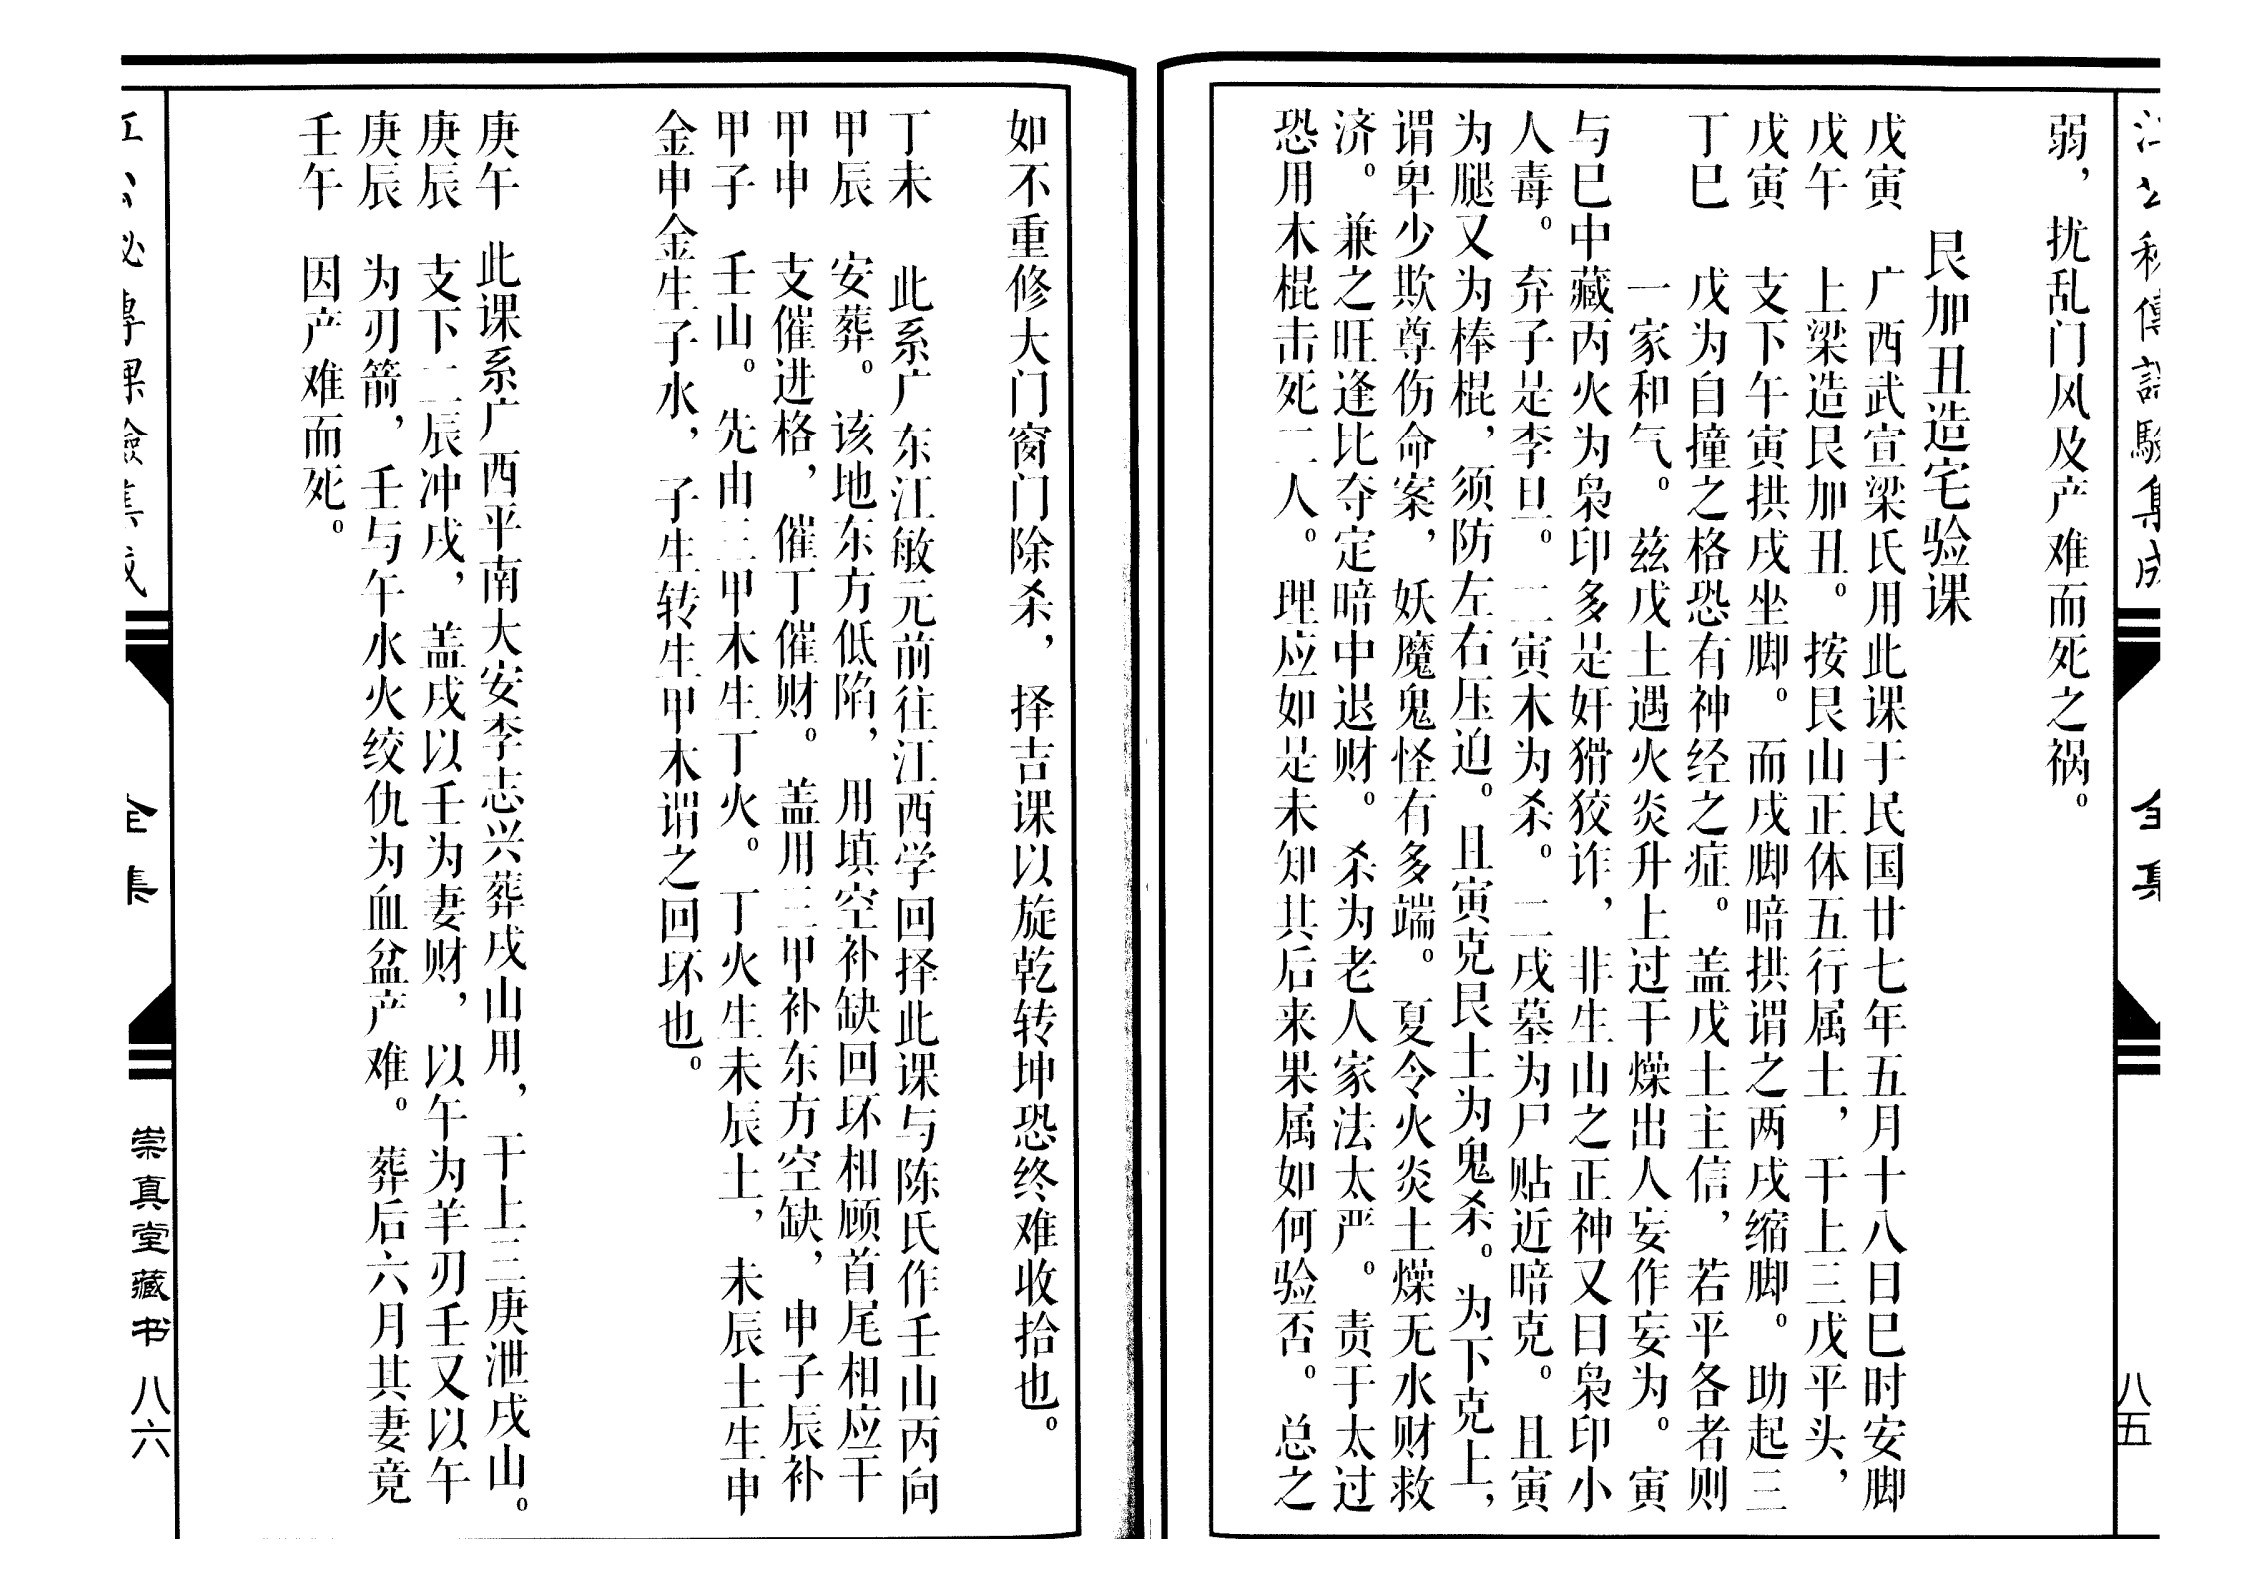 江公秘傳課驗集成
全集
八五
弱，扰乱门风及产难而死之祸。
艮加丑造宅验课
戊寅　广西武宣梁氏用此课于民国廿七年五月十八日巳时安脚
戊午　上梁造艮加丑。按艮山正体五行属土，干上三戊平头，
戊寅　支下午寅拱戌坐脚。而戌脚暗拱谓之两戌缩脚。助起三
丁巳　戊为自撞之格恐有神经之症。盖戊土主信，若平各者则
一家和气。兹戊土遇火炎升上过干燥出人妄作妄为。寅
与巳中藏丙火为枭印多是奸猾狡诈，非生山之正神又曰枭印小
人毒。弃子是李旦。二寅木为杀。二戌墓为尸贴近暗克。且寅
为腿又为棒棍，须防左右压迫。且寅克艮土为鬼杀。为下克上，
谓卑少欺尊伤命案，妖魔鬼怪有多端。夏令火炎土燥无水财救
济。兼之旺逢比夺定暗中退财。杀为老人家法太严。责于太过
恐用木棍击死二人。理应如是未知其后来果属如何验否。总之
如不重修大门窗门除杀，择吉课以旋乾转坤恐终难收拾也。
丁未　此系广东江敏元前往江西学回择此课与陈氏作壬山丙向
甲辰　安葬。该地东方低陷，用填空补缺回环相顾首尾相应干
甲申　支催进格，催丁催财。盖用三甲补东方空缺，申子辰补
甲子　壬山。先由三甲木生丁火。丁火生未辰土，未辰土生申
金申金生子水，子生转生甲木谓之回环也。
庚午　此课系广西平南大安李志兴葬戌山用，干上三庚泄戌山。
庚辰　支下二辰冲戌，盖戌以壬为妻财，以午为羊刃壬又以午
庚辰　为刃箭，壬与午水火绞仇为血盆产难。葬后六月其妻竟
壬午　因产难而死。
江公秘專課驗集成
全集
崇真堂藏书
八六